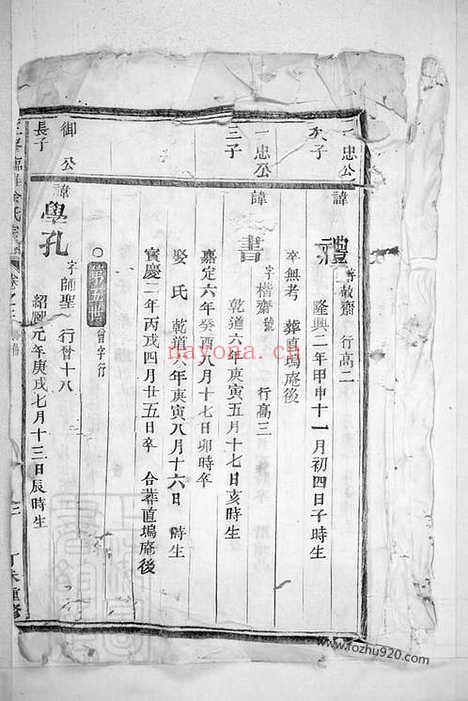 一忠公
次子
諱
禮
字敬齋 行高二
隆興二年甲申十一月初四日子時生
卒無考 葬直塢庵後
一忠公
三子
諱
書
字楷齋號 行高三
乾道六年庚寅五月十七日亥時生
嘉定六年癸酉八月十七日卯時卒
娶氏 乾道六年庚寅八月十六日 時生
寶慶二年丙戌四月廿五日卒 合葬直塢庵後
○第五世 曾字行
御公
長子
諱
學孔
字師聖 行曾十八
紹熙元年庚戌七月十三日辰時生
卷之三
三
丁未重修
nayona.cn
www.fozhu920.com